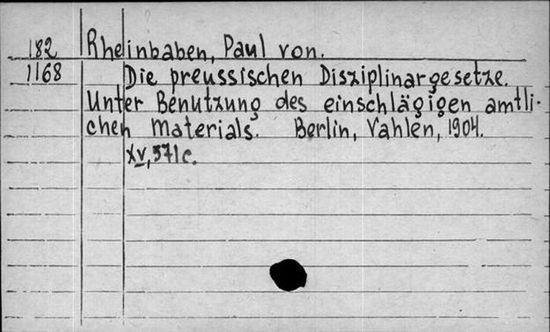 182 Rheinbaben, Paul von.
1168 Die preussischen Disziplinargesetze.
Unter Benutzung des einschlägigen amtli-
chen Materials. Berlin, Vahlen, 1904.
XV, 571 c.